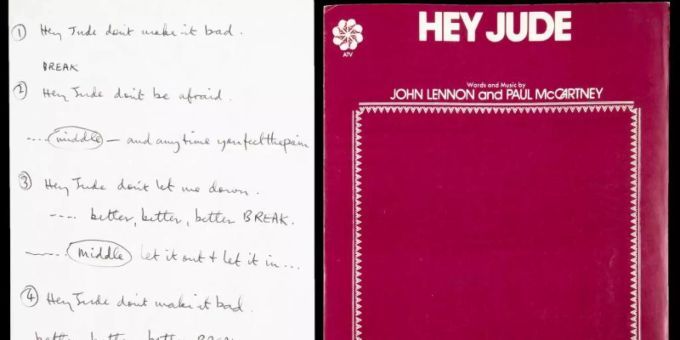 ① Hey Jude don't make it bad.
BREAK
② Hey Jude don't be afraid.
.... middle — and any time you feel the pain
③ Hey Jude don't let me down.
---- better, better, better BREAK.
middle let it out & let it in ...
④ Hey Jude don't make it bad.
better better better BREAK
HEY JUDE
ATV
Words and Music by
JOHN LENNON and PAUL McCARTNEY